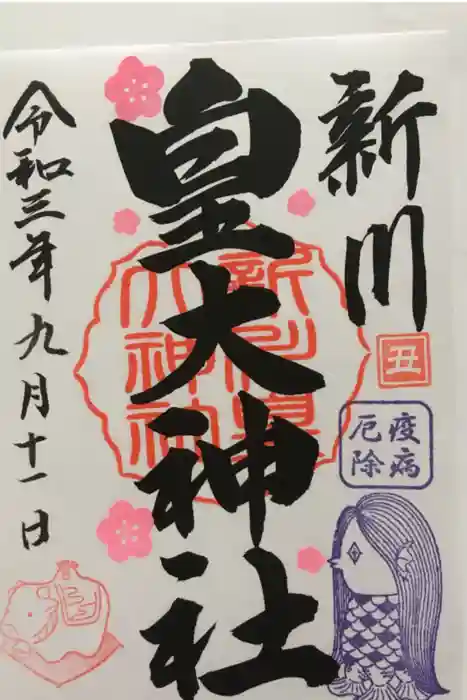 新川
丑
疫病
厄除
皇大神社
新川皇
大神社
令和三年九月十一日